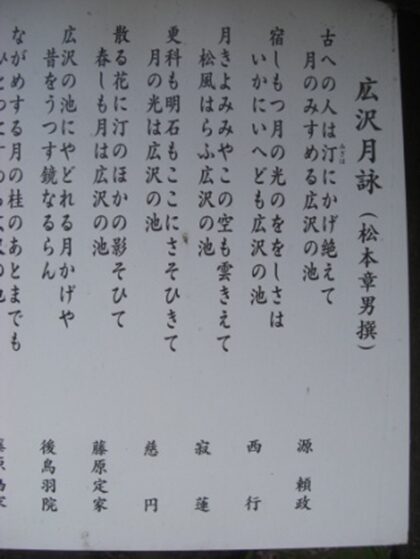 広沢月詠（松本章男撰）
古への人は汀にかげ絶えて
みぎは
月のみすめる広沢の池
源 頼政
宿しもつ月の光のををしさは
いかにいへども広沢の池
西 行
月きよみみやこの空も雲きえて
松風はらふ広沢の池
寂 蓮
更科も明石もここにさそひきて
月の光は広沢の池
慈 円
散る花に汀のほかの影そひて
春しも月は広沢の池
藤原定家
広沢の池にやどれる月かげや
昔をうつす鏡なるらん
後鳥羽院
ながめする月の桂のあとまでも